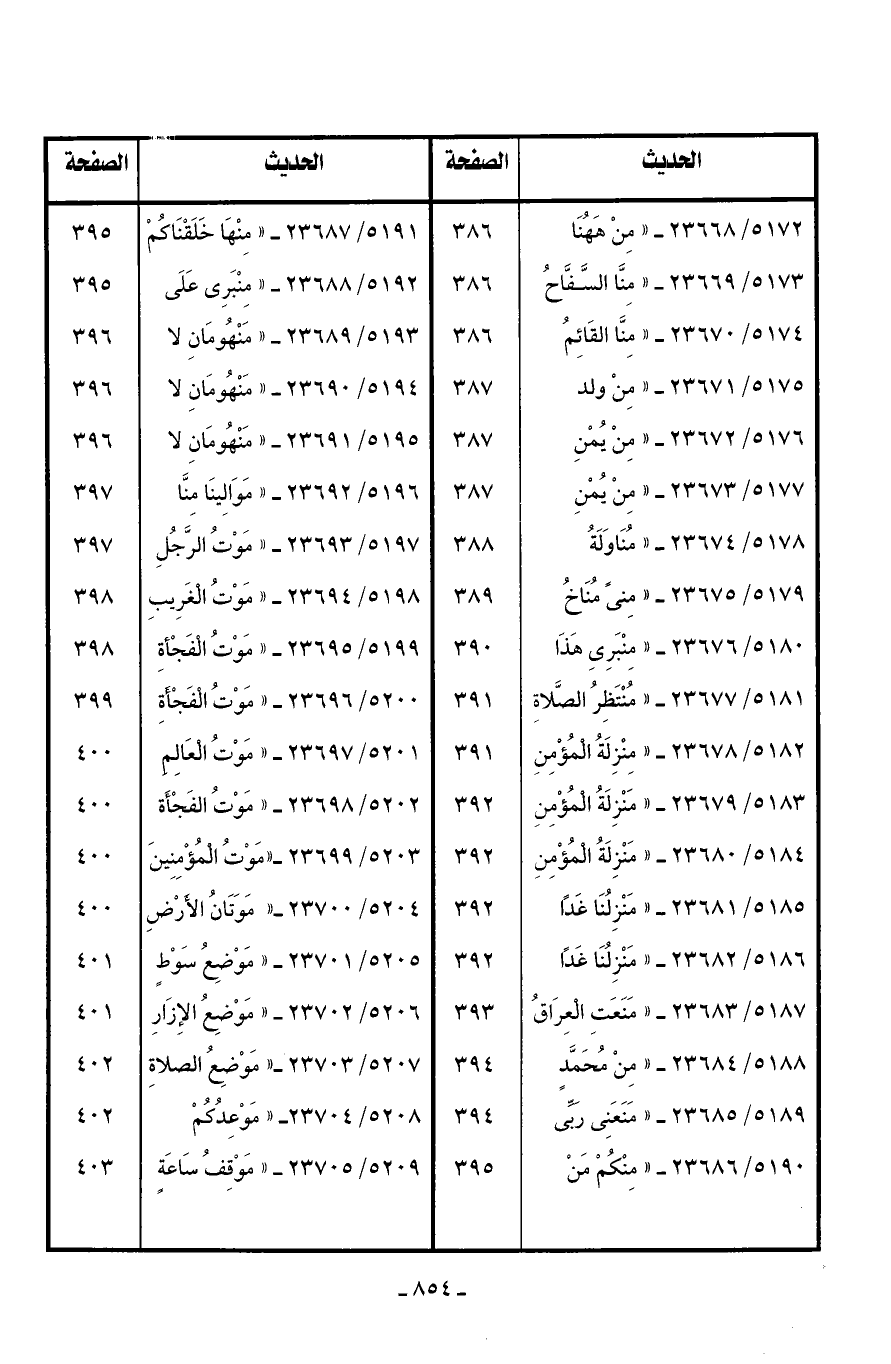 الحديث الصفحة الحديث الصفحة
٥١٧٢/ ٢٣٦٦٨ ـ « مِنْ هَهُنَا ٣٨٦ ٥١٩١/ ٢٣٦٨٧ ـ « مِنْهَا خَلَقْنَاكُمْ ٣٩٥
٥١٧٣/ ٢٣٦٦٩ ـ « مِنَّا السَّفَّاحُ ٣٨٦ ٥١٩٢/ ٢٣٦٨٨ ـ « مِنْبَرِى عَلَى ٣٩٥
٥١٧٤/ ٢٣٦٧٠ ـ « مِنَّا القَائِمُ ٣٨٦ ٥١٩٣/ ٢٣٦٨٩ ـ « مَنْهُومَانِ لا ٣٩٦
٥١٧٥/ ٢٣٦٧١ ـ « مِنْ ولد ٣٨٧ ٥١٩٤/ ٢٣٦٩٠ ـ « مَنْهُومَانِ لا ٣٩٦
٥١٧٦/ ٢٣٦٧٢ ـ « مِنْ يُمْنِ ٣٨٧ ٥١٩٥/ ٢٣٦٩١ ـ « مَنْهُومَانِ لا ٣٩٦
٥١٧٧/ ٢٣٦٧٣ ـ « مِنْ يُمْنِ ٣٨٧ ٥١٩٦/ ٢٣٦٩٢ ـ « مَوَالِينَا مِنَّا ٣٩٧
٥١٧٨/ ٢٣٦٧٤ ـ « مُنَاوَلَةُ ٣٨٨ ٥١٩٧/ ٢٣٦٩٣ ـ « مَوْتُ الرَّجُلِ ٣٩٧
٥١٧٩/ ٢٣٦٧٥ ـ « مِنىً مُنَاخُ ٣٨٩ ٥١٩٨/ ٢٣٦٩٤ ـ « مَوْتُ الْغَرِيبِ ٣٩٨
٥١٨٠/ ٢٣٦٧٦ ـ « مِنْبَرِى هَذَا ٣٩٠ ٥١٩٩/ ٢٣٦٩٥ ـ « مَوْتُ الْفَجْأَةِ ٣٩٨
٥١٨١/ ٢٣٦٧٧ ـ « مُنْتَظِرُ الصَّلاَةِ ٣٩١ ٥٢٠٠/ ٢٣٦٩٦ ـ « مَوْتُ الْفَجْأَةِ ٣٩٩
٥١٨٢/ ٢٣٦٧٨ ـ « مَنْزِلَةُ الْمُؤْمِنِ ٣٩١ ٥٢٠١/ ٢٣٦٩٧ ـ « مَوْتُ الْعَالِمِ ٤٠٠
٥١٨٣/ ٢٣٦٧٩ ـ « مَنْزِلَةُ الْمُؤْمِنِ ٣٩٢ ٥٢٠٢/ ٢٣٦٩٨ ـ « مَوْتُ الفَجْأَةِ ٤٠٠
٥١٨٤/ ٢٣٦٨٠ ـ « مَنْزِلَةُ الْمُؤْمِنِ ٣٩٢ ٥٢٠٣/ ٢٣٦٩٩ ـ«مَوْتُ الْمُؤْمِنِينَ ٤٠٠
٥١٨٥/ ٢٣٦٨١ ـ « مَنْزِلُنَا غَدًا ٣٩٢ ٥٢٠٤/ ٢٣٧٠٠ ـ« مَوَتَانُ الأَرْضِ ٤٠٠
٥١٨٦/ ٢٣٦٨٢ ـ « مَنْزِلُنَا غَدًا ٣٩٢ ٥٢٠٥/ ٢٣٧٠١ ـ « مَوْضِعُ سَوْطٍ ٤٠١
٥١٨٧/ ٢٣٦٨٣ ـ « مَنَعَتِ الْعِرَاقُ ٣٩٣ ٥٢٠٦/ ٢٣٧٠٢ ـ « مَوْضِعُ الإِزَارِ ٤٠١
٥١٨٨/ ٢٣٦٨٤ ـ « مِنْ مُحَمَّدٍ ٣٩٤ ٥٢٠٧/ ٢٣٧٠٣ ـ« مَوْضِعُ الصلاةِ ٤٠٢
٥١٨٩/ ٢٣٦٨٥ ـ « مَنَعَنِى رَبِّى ٣٩٤ ٥٢٠٨/ ٢٣٧٠٤ـ « مَوْعِدُكُمْ ٤٠٢
٥١٩٠/ ٢٣٦٨٦ ـ « مِنْكُمْ مَنْ ٣٩٥ ٥٢٠٩/ ٢٣٧٠٥ ـ « مَوْقِفُ سَاعَةٍ ٤٠٣
ـ ٨٥٤ ـ